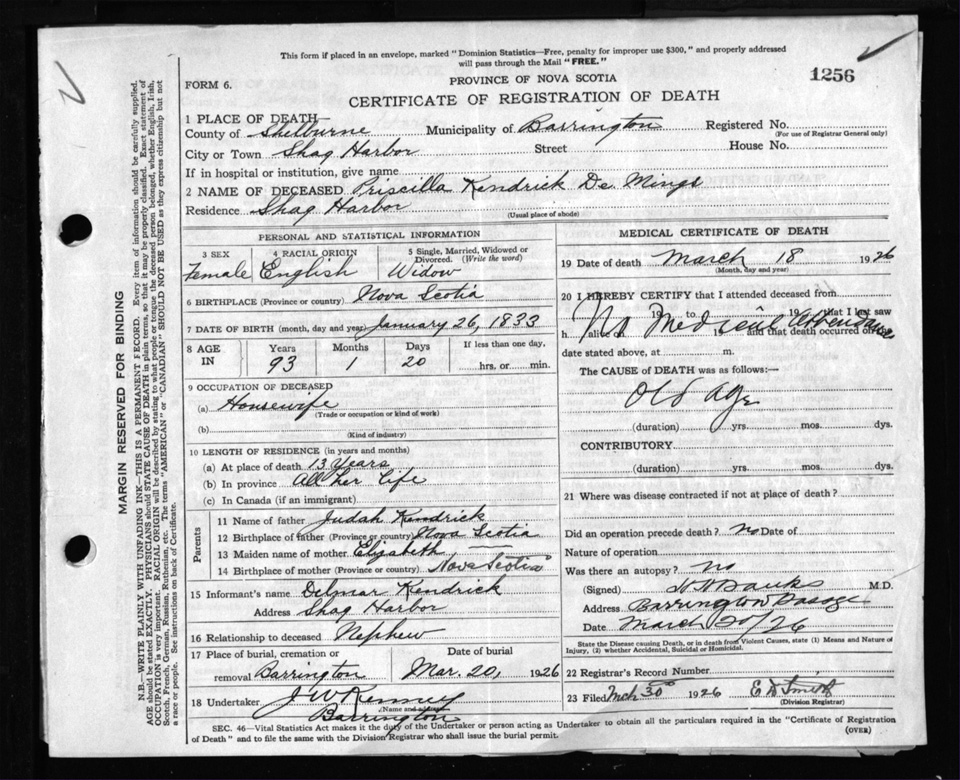 This form if placed in an envelope, marked "Dominion Statistics—Free, penalty for improper use $300," and properly addressed
will pass through the Mail "FREE."
1256
FORM 6.
PROVINCE OF NOVA SCOTIA
CERTIFICATE OF REGISTRATION OF DEATH
1 PLACE OF DEATH
County of Shelburne Municipality of Barrington Registered No.
(For use of Registrar General only)
City or Town Shag Harbor Street House No.
If in hospital or institution, give name
2 NAME OF DECEASED Priscilla Kendrick De Mings
Residence Shag Harbor
(Usual place of abode)
PERSONAL AND STATISTICAL INFORMATION
3 SEX 4 RACIAL ORIGIN 5 Single, Married, Widowed or Divorced. (Write the word)
Female English Widow
6 BIRTHPLACE (Province or country) Nova Scotia
7 DATE OF BIRTH (month, day and year) January 26, 1833
8 AGE IN Years Months Days If less than one day,
93 1 20 hrs. or min.
9 OCCUPATION OF DECEASED
(a) Housewife
(Trade or occupation or kind of work)
(b)
(Kind of industry)
10 LENGTH OF RESIDENCE (in years and months)
(a) At place of death 13 Years
(b) In province All her Life
(c) In Canada (if an immigrant)
Parents
11 Name of father Judah Kendrick
12 Birthplace of father (Province or country) Nova Scotia
13 Maiden name of mother Elizabeth, —
14 Birthplace of mother (Province or country) Nova Scotia
15 Informant's name Delmar Kendrick
Address Shag Harbor
16 Relationship to deceased Nephew
17 Place of burial, cremation or Date of burial
removal Barrington Mar. 20, 1926
18 Undertaker J W Kenney
(Name and
Barrington
MEDICAL CERTIFICATE OF DEATH
19 Date of death March 18 1926
(Month, day and year)
20 I HEREBY CERTIFY that I attended deceased from
19 to 19 that I last saw
h alive on 19 and that death occurred on the
No Medical attendance
date stated above, at m.
The CAUSE of DEATH was as follows:—
Old age
(duration) yrs. mos. dys.
CONTRIBUTORY
(duration) yrs. mos. dys.
21 Where was disease contracted if not at place of death?
Did an operation precede death? No Date of
Nature of operation
Was there an autopsy? No
(Signed) Banks M.D.
Address Barrington Passage
Date March 20/26
State the Disease causing Death, or in death from Violent Causes, state (1) Means and Nature of
Injury, (2) whether Accidental, Suicidal or Homicidal.
22 Registrar's Record Number
23 Filed Mch 30 1926 E D Smith
(Division Registrar)
SEC. 46—Vital Statistics Act makes it the duty of the Undertaker or person acting as Undertaker to obtain all the particulars required in the "Certificate of Registration
of Death" and to file the same with the Division Registrar who shall issue the burial permit.
(OVER)
MARGIN RESERVED FOR BINDING
N.B.—WRITE PLAINLY WITH UNFADING INK—THIS IS A PERMANENT RECORD. Every item of information should be carefully supplied.
AGE should be stated EXACTLY. PHYSICIANS should STATE CAUSE OF DEATH in plain terms, so that it may be properly classified. Exact statement of
OCCUPATION is very important. RACIAL ORIGIN will be described by stating to what people or tongue the deceased person belonged, whether English, Irish,
Scotch, French, German, Russian, Ruthenian, etc. The terms "AMERICAN" or "CANADIAN" SHOULD NOT BE USED as they express citizenship but not
a race or people. See instructions on back of Certificate.